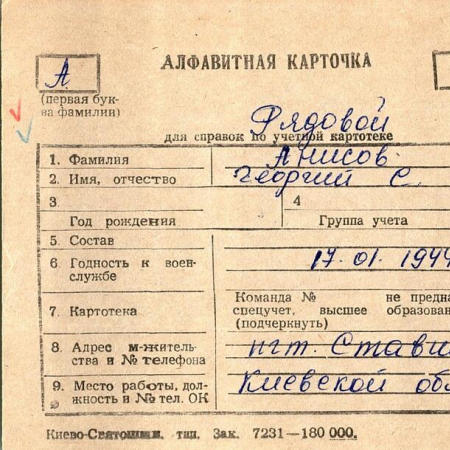 АЛФАВИТНАЯ КАРТОЧКА
А
(первая бук-
ва фамилии)
Рядовой
для справок по учетной картотеке
1. Фамилия Анисов
2. Имя, отчество Георгий С.
3 4
Год рождения Группа учета
5. Состав
6. Годность к воен-
службе 17.01.1944
7. Картотека Команда № не предна
спецучет, высшее образован
(подчеркнуть)
8. Адрес м-житель-
ства и № телефона пгт. Стави
9. Место работы, дол-
жность и № тел. ОК Киевской об
Киево-Святошин. тип. Зак. 7231—180 000.